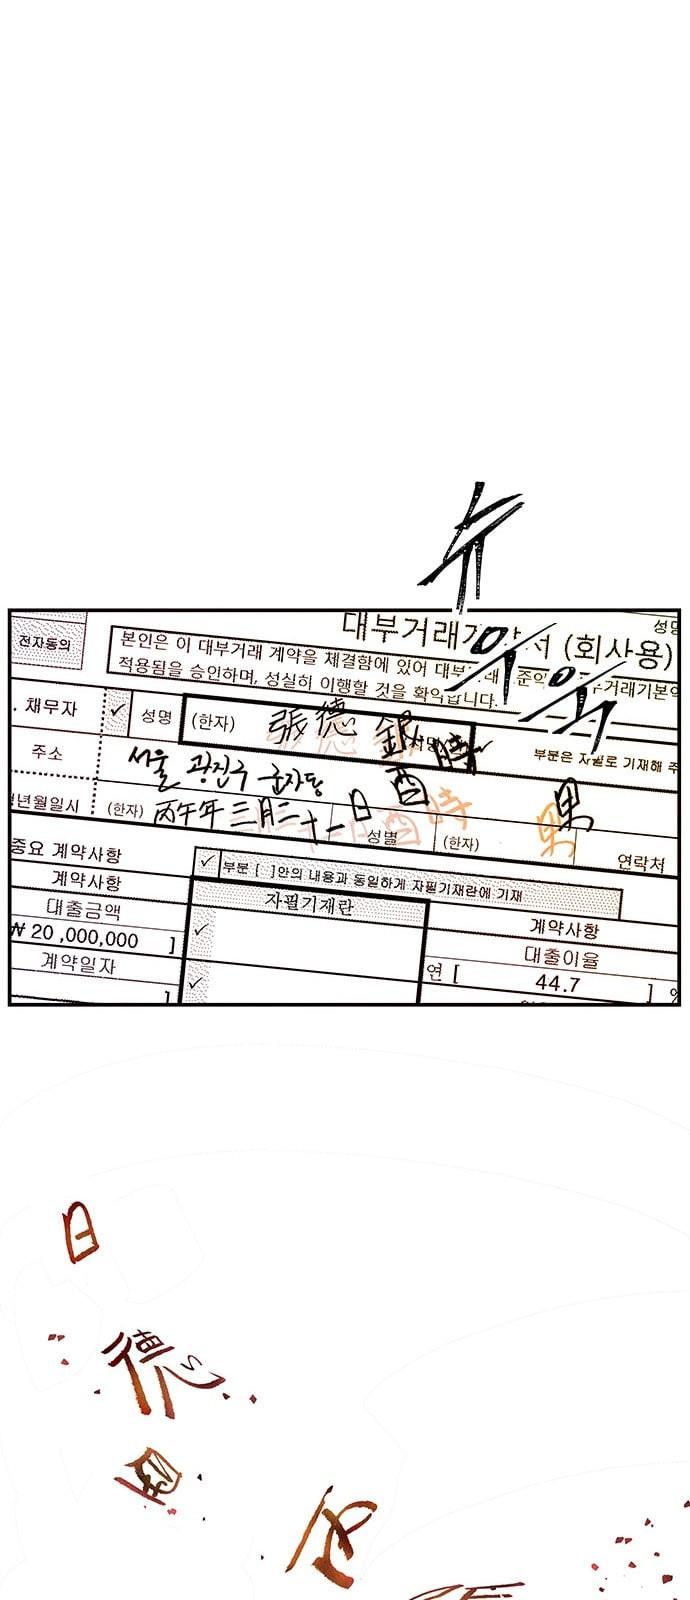 뉴
대부거래계약서 (회사용)
성명
전자동의
본인은 이 대부거래 계약을 체결함에 있어 대부거래 표준약
적용됨을 승인하며, 성실히 이행할 것을 확약합니다.
부거래기본약
. 채무자 ✓ 성명 (한자) 張德銀
부분은 자필로 기재해 주
주소 서울 광진구 군자동
년월일시 (한자) 丙午年 三月二十一日 酉時
성별 (한자) 男
연락처
중요 계약사항
✓ 부분 [ ]안의 내용과 동일하게 자필기재란에 기재
계약사항 자필기재란 계약사항
대출금액 ✓ 대출이율
₩ 20,000,000 ] 연 [ 44.7 ] %
계약일자 ✓
]
日
德
酉